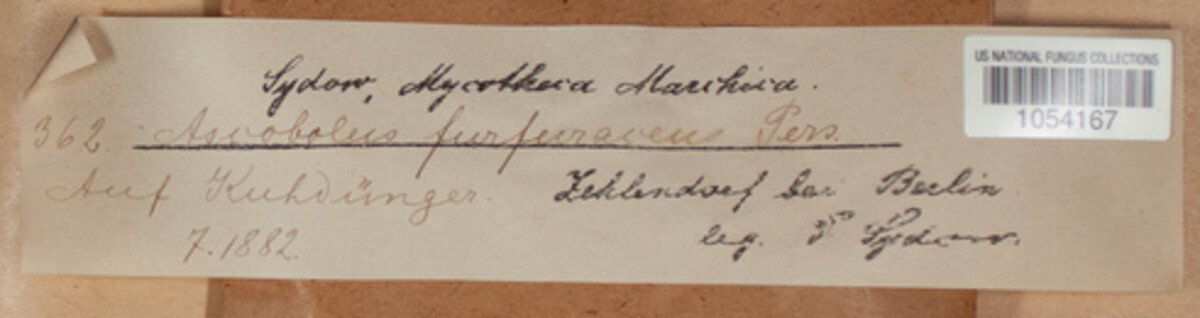 Sydow, Mycotheca Marchica.
362. Ascobolus furfuraceus Pers.
Auf Kuhdünger. Zehlendorf bei Berlin
7.1882. leg. P. Sydow.
US NATIONAL FUNGUS COLLECTIONS
1054167